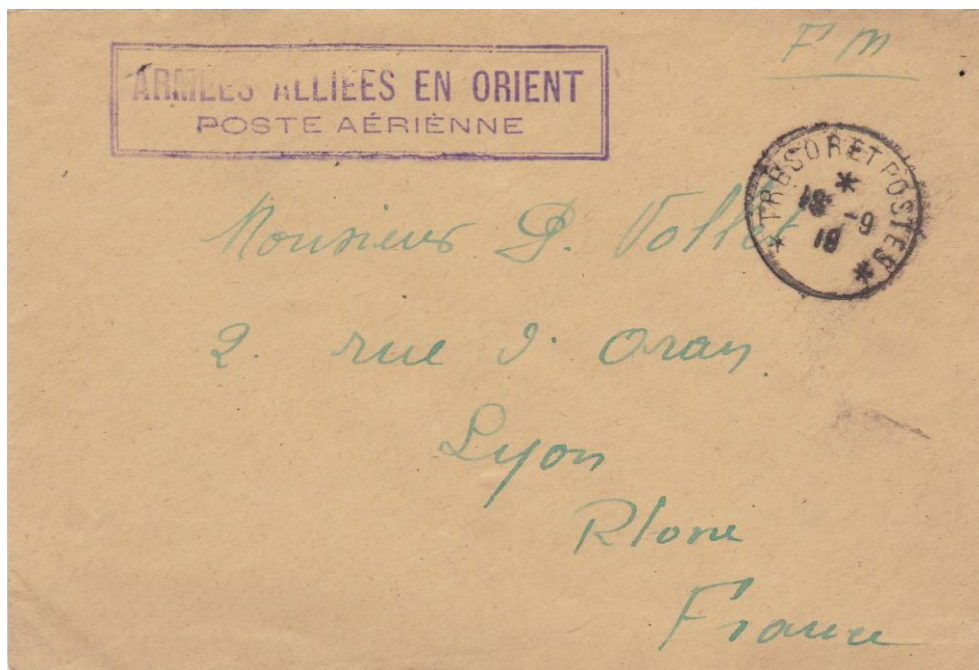 F M
ARMÉES ALLIÉES EN ORIENT
POSTE AÉRIÈNNE
* TRESOR ET POSTES *
*
18 - 9
19
Monsieur P. Vollet
2. rue d'Oran
Lyon
Rhone
France